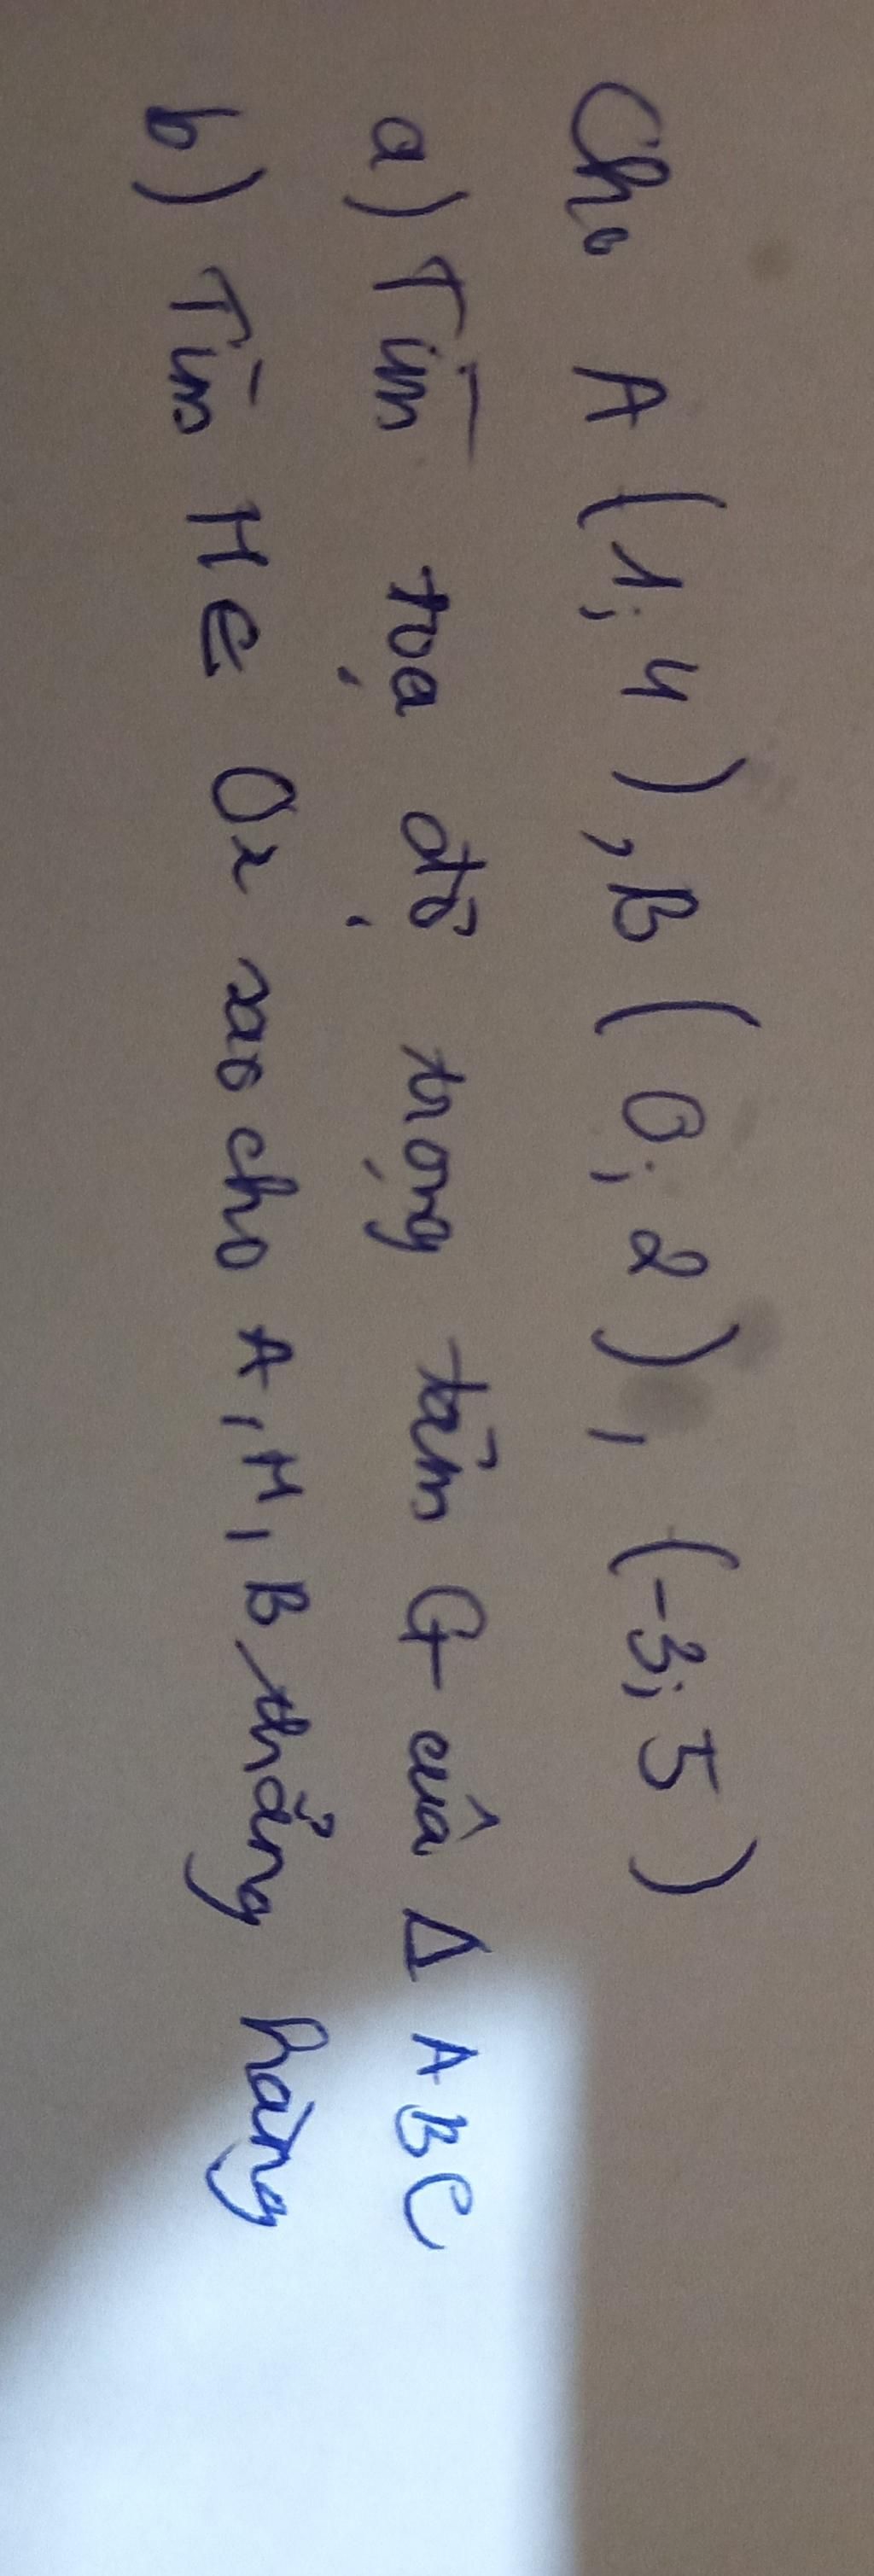 Cho A (1; 4), B (0; 2), (-3; 5)
a) Tìm tọa độ trọng tâm G của Δ ABC
b) Tìm M ∈ Ox sao cho A, M, B thẳng hàng